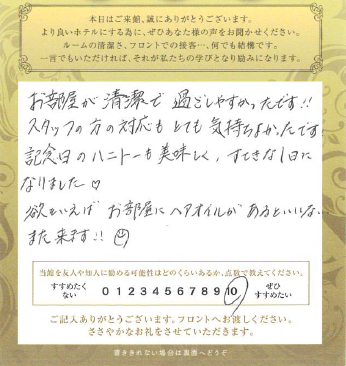 本日はご来館、誠にありがとうございます。
より良いホテルにする為に、ぜひあなた様の声をお聞かせください。
ルームの清潔さ、フロントでの接客…、何でも結構です。
一言でもいただければ、それが私たちの学びとなり励みになります。
お部屋が清潔で過ごしやすかったです!!
スタッフの方の対応もとても気持ちよかったです!
記念日のハニトーも美味しく、すてきな1日に
なりました♡
欲をいえばお部屋にヘアオイルがあるといいな、
また来ます!!
当館を友人や知人に勧める可能性はどのくらいあるか、点数で教えてください。
すすめたくない 0 1 2 3 4 5 6 7 8 9 10 ぜひすすめたい
ご記入ありがとうございます。フロントへお渡しください。
ささやかなお礼をさせていただきます。
書ききれない場合は裏面へどうぞ